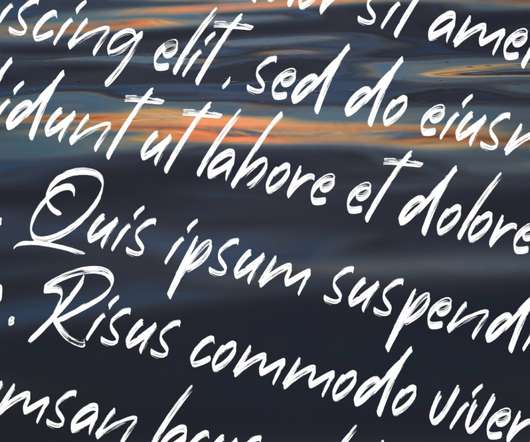 sit amer
iscing elit, sed do eiusr
didunt ut labore et dolore
. Quis ipsum suspendi
. Risus commodo viver
msan lacus